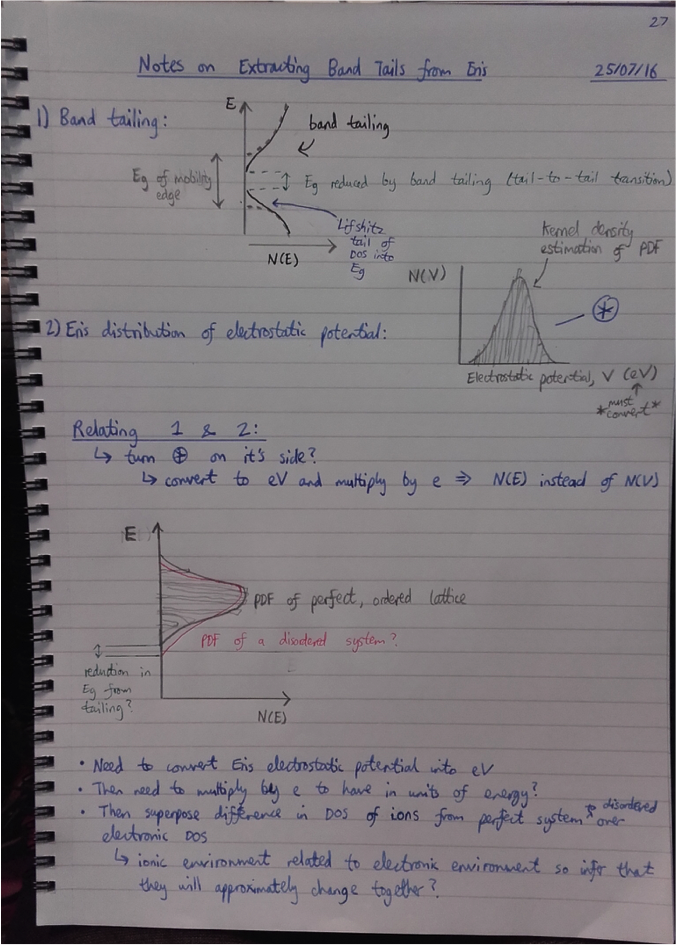 27
Notes on Extracting Band Tails from Eris
25/07/16
1) Band tailing:
E
band tailing
Eg of mobility
edge
Eg reduced by band tailing (tail-to-tail transition)
Lifshitz
tail of
DOS into
Eg
N(E)
Kernel density
estimation of PDF
N(V)
2) Eris distribution of electrostatic potential:
Electrostatic potential, V (eV)
*must
convert*
Relating 1 & 2:
↳ turn ⊕ on it's side?
↳ convert to eV and multiply by e ⇒ N(E) instead of N(V)
E
PDF of perfect, ordered lattice
PDF of a disordered system?
reduction in
Eg from
tailing?
N(E)
• Need to convert Eris electrostatic potential into eV
• Then need to multiply by e to have in units of energy?
• Then superpose difference in DOS of ions from perfect system to disordered over
electronic DOS
↳ ionic environment related to electronic environment so infer that
they will approximately change together?